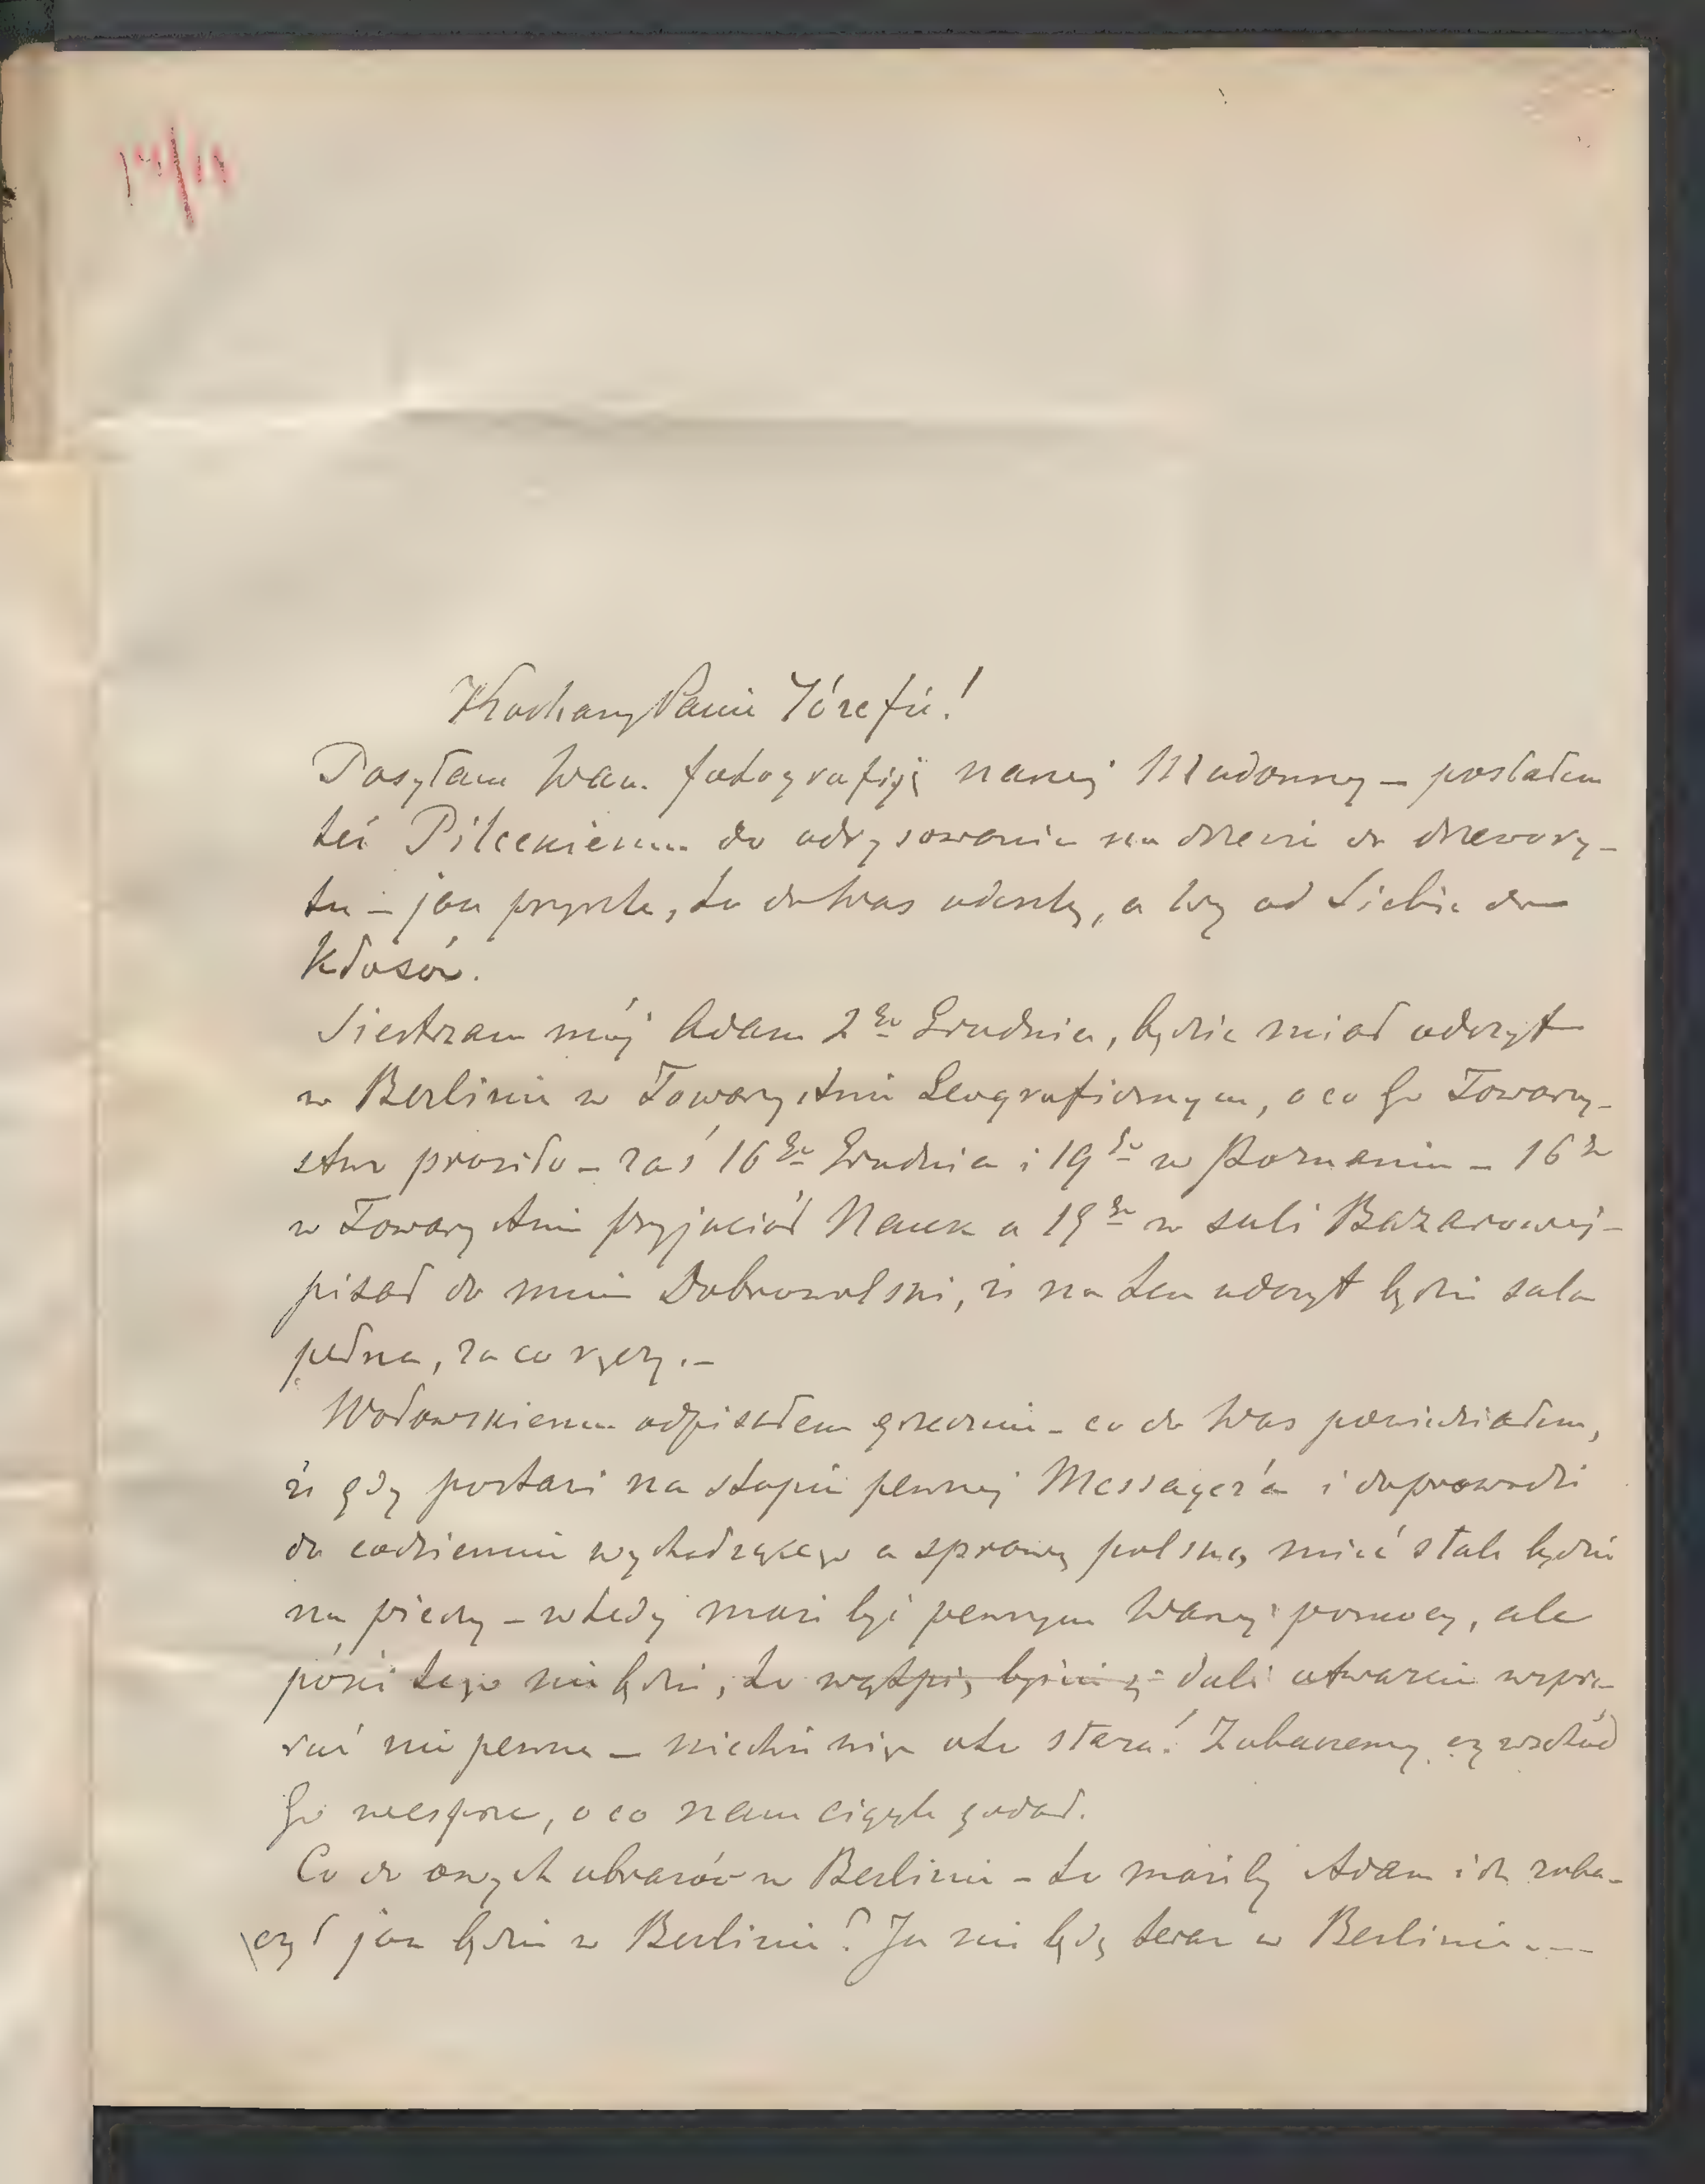 Kochany Panie Józefie!
Posyłam Wam fotografiję naszej Madonny – posłałem
też Pileckiemu do odrysowania na drzewie do drzewory-
tu – jak przyszle, to do Was odeszlę, a Wy od Siebie do
Kłosów.
Siestrzan mój Adam 2go Grudnia, będzie miał odczyt
w Berlinie w Towarzystwie Geograficznym, o co Go Towarzy-
stwo prosiło – zaś 16go Grudnia i 19go w Poznaniu – 16go
w Towarzystwie Przyjaciół Nauk a 19go w sali Bazarowej –
pisał do mnie Dobrowolski, że na ten odczyt będzie sala
pełna, za co ręczy. –
Wołowskiemu odpisałem grzecznie – co do Was powiedziałem,
że gdy postawi na stopie pewnej Messager'a i doprowadzi
do codziennie wychodzącego a sprawę polską mieć stale będzie
na pieczy – wtedy może być pewnym Waszej pomocy, ale
póki tego nie będzie, to wątpię byście dali otwarcie wspie-
rać nie pewne – niechże się o to stara! Zobaczemy, czy wschód
Go wesprze, o co nam ciągle gadał.
Co do onych obrazów w Berlinie – to możeby Adam ich zoba-
czył jak będzie w Berlinie? Ja nie będę teraz w Berlinie ----